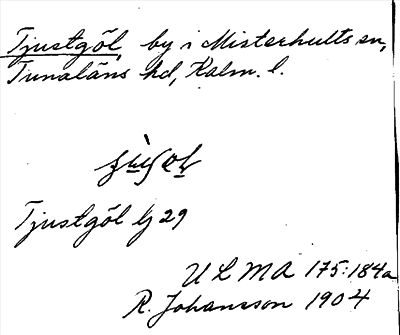 Tjustgöl, by i Misterhults sn,
Tunaläns hd, Kalm. l.
Tjustgöl lj 29
U L M A 175:184a
R. Johansson 1904